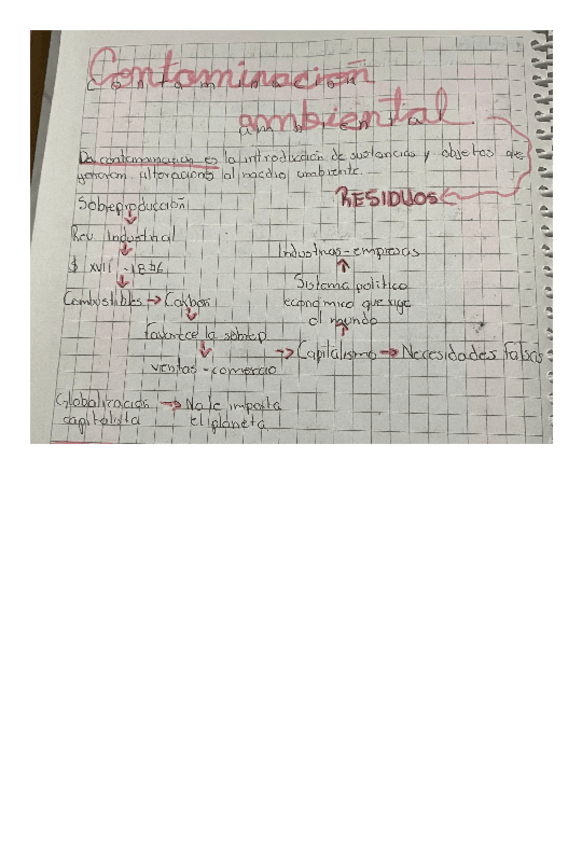 Contaminación
ambiental.
La contaminación es la introducción de sustancias y objetos que
generan alteraciones al medio ambiente.
RESIDUOS
Sobreproducción
Rev. Industrial
Industrias-empresas
Sistema político
económico que rige
el mundo
Combustibles → Carbón
favorece la sobrep
→ Capitalismo → Necesidades falsas
ventas - comercio
Globalización → No le importa
capitalista el planeta.